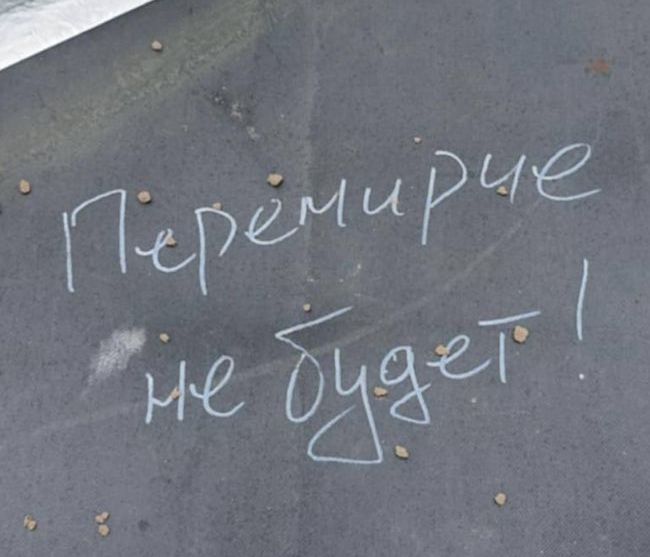 Перемирие
не будет!